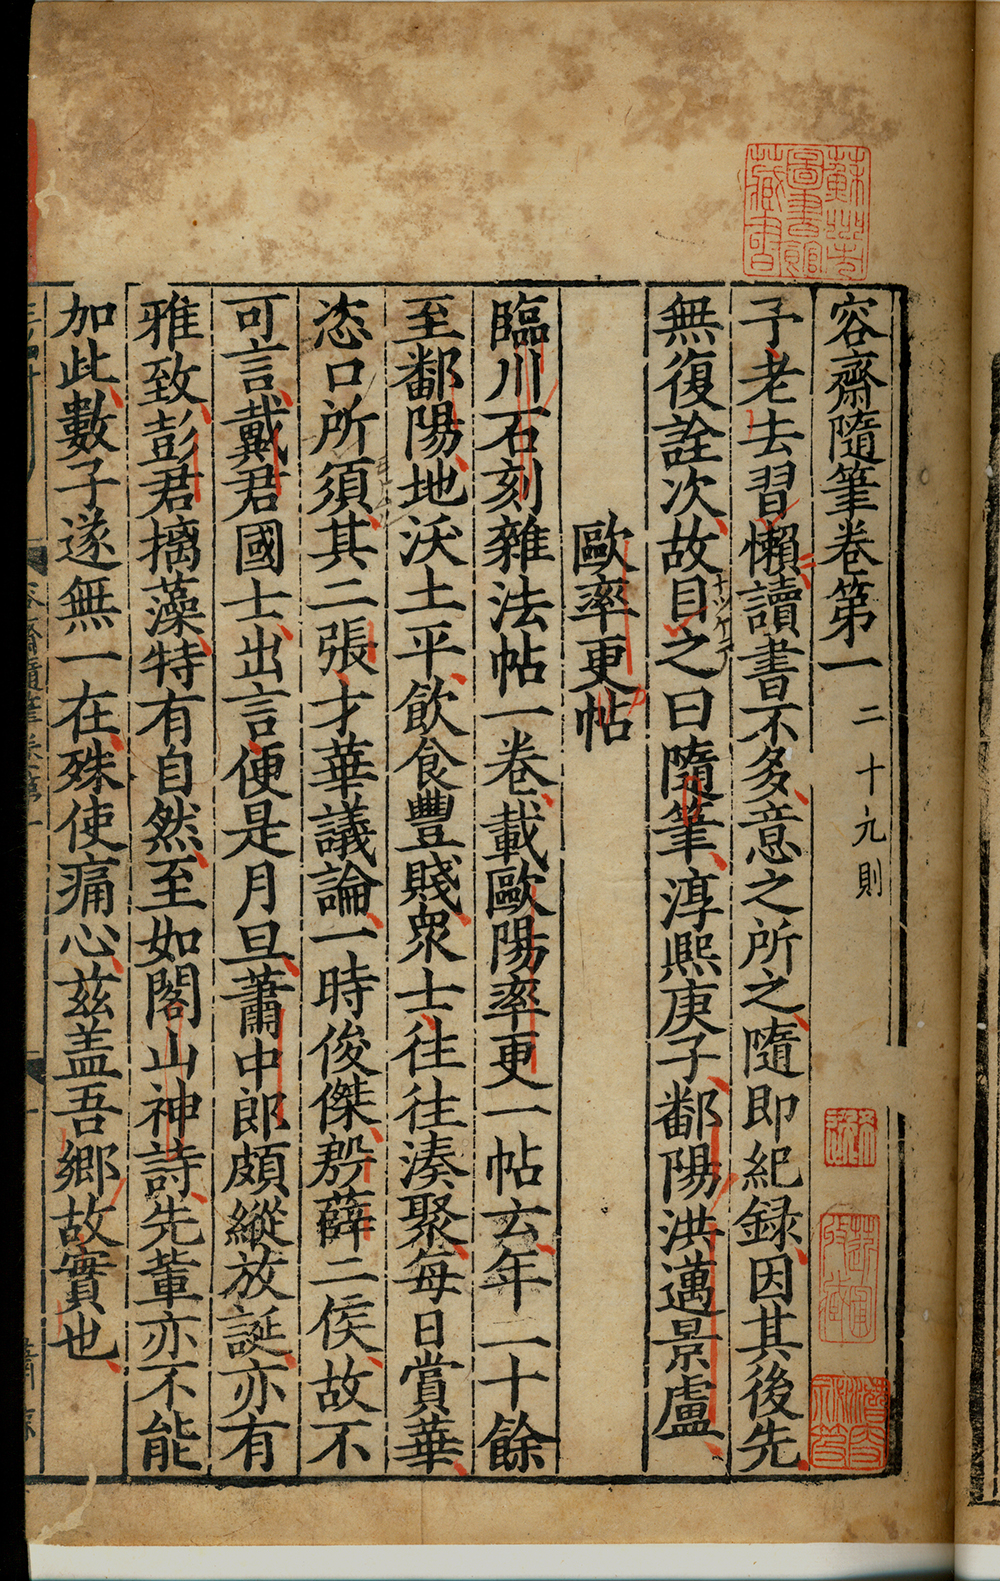 容齋隨筆卷第一 二十九則
予老去習懶讀書不多意之所之隨即紀録因其後先
無復詮次故目之曰隨筆淳熙庚子鄱陽洪邁景盧
歐率更帖
臨川石刻雜法帖一卷載歐陽率更一帖云年二十餘
至鄱陽地沃土平飲食豐賤衆士往往湊聚每日賞華
恣口所須其二張才華議論一時俊傑殷薛二侯故不
可言戴君國士出言便是月旦蕭中郎頗縱放誕亦有
雅致彭君摛藻特有自然至如閣山神詩先輩亦不能
加此數子遂無一在殊使痛心茲盖吾鄉故實也
蘇州市
圖書館
藏書